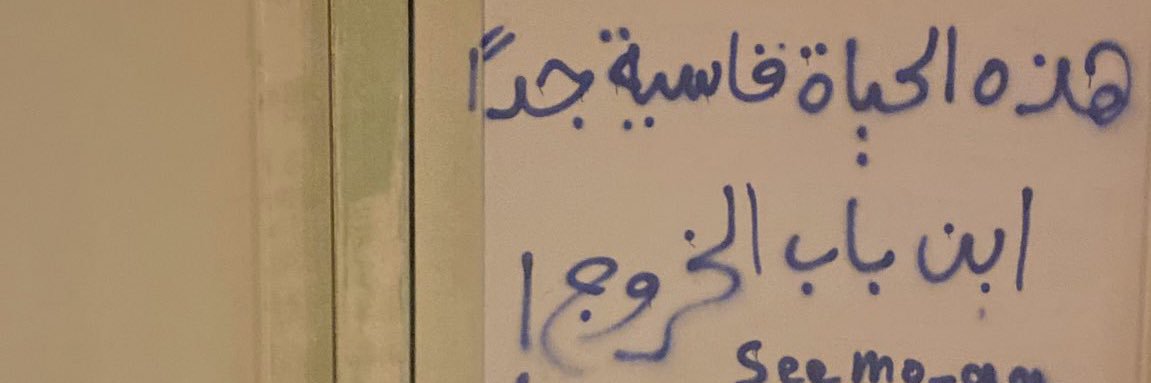 هذه الحياة قاسية جداً
اين باب الخروج!
See mo-am